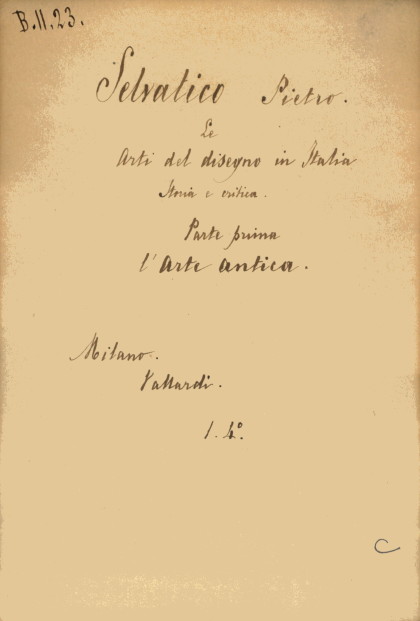 B.II.23.
Selvatico Pietro.
Le
Arti del disegno in Italia
Storia e critica.
Parte prima
l'Arte antica.
Milano.
Vallardi.
1. 4°.
C